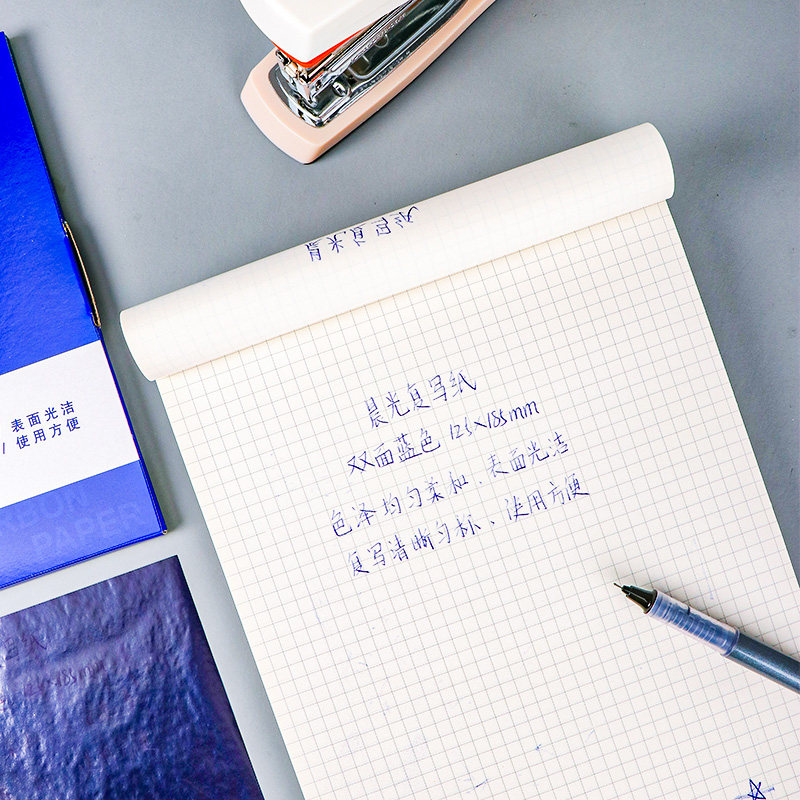 晨光复写纸
双面蓝色 125×185mm
色泽均匀柔和、表面光洁
复写清晰匀标、使用方便
表面光洁
/ 使用方便
RBON
PAPER